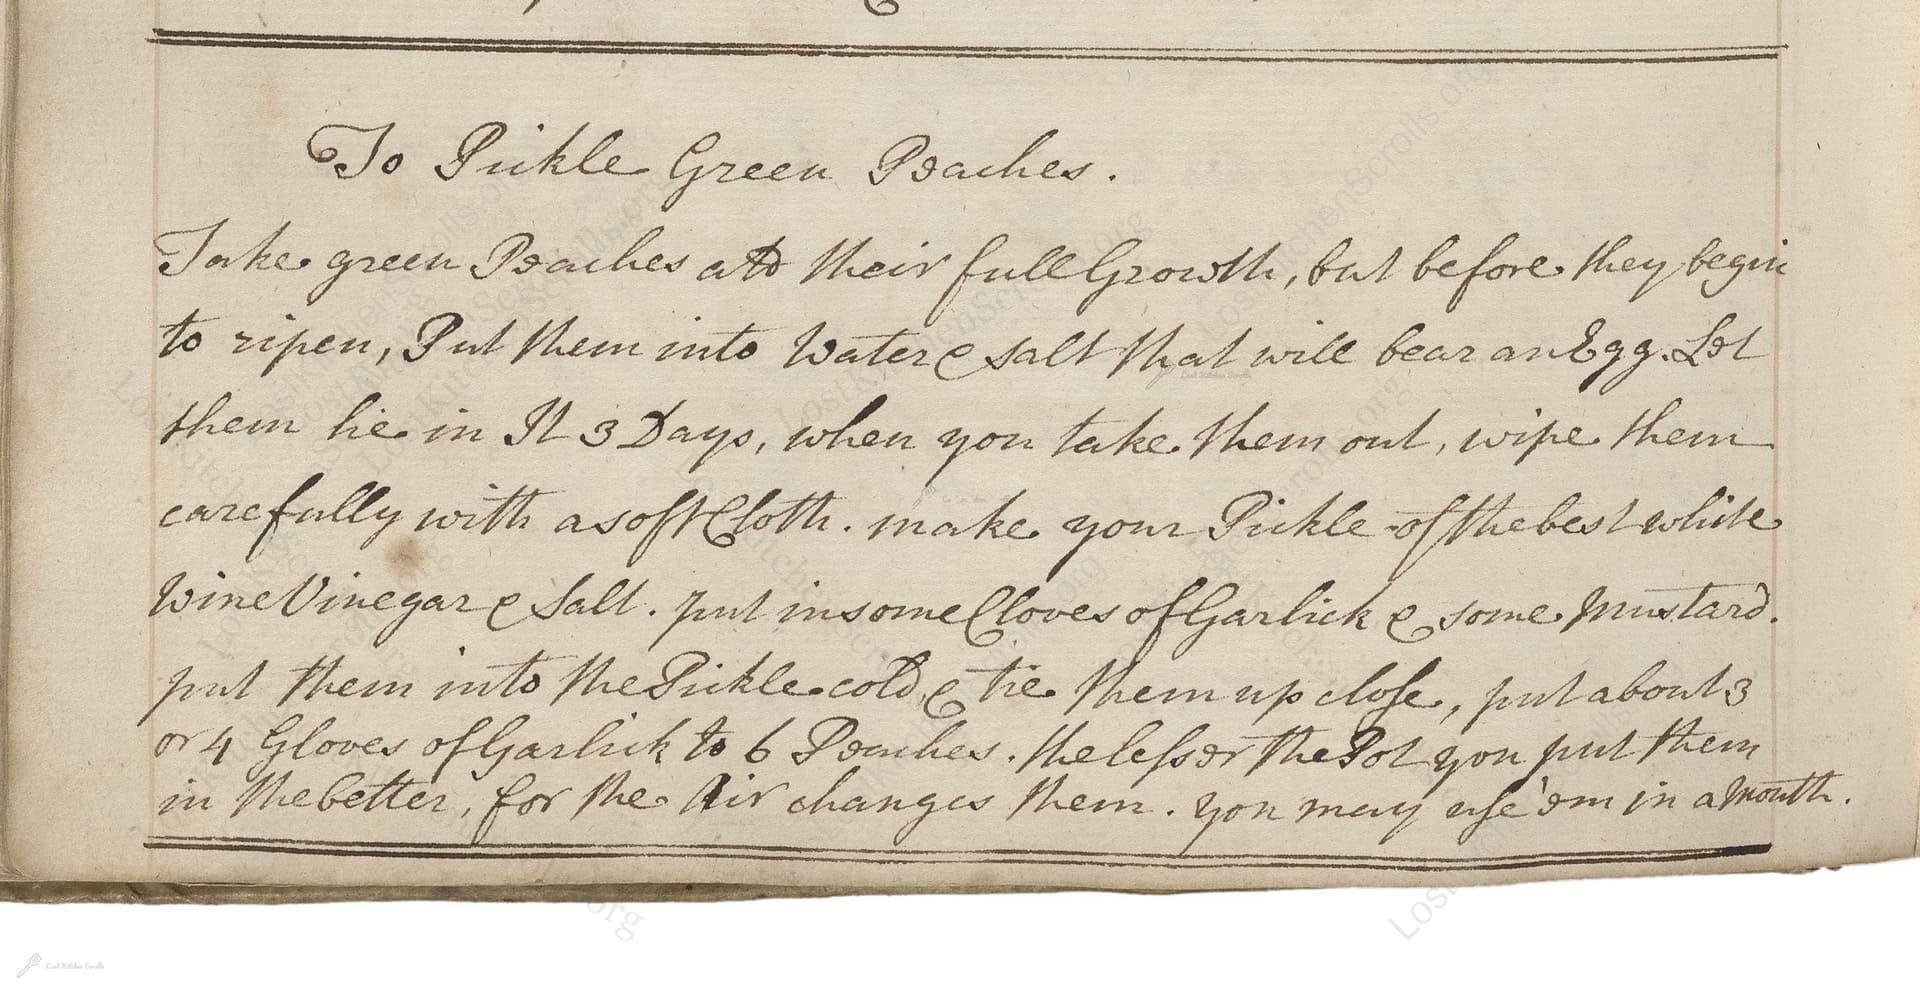 To Pickle Green Peaches.
Take green Peaches att their full Growth, but before they begin
to ripen, Put them into Water & salt that will bear an Egg. Let
them lie in It 3 Days, when you take them out, wipe them
carefully with a soft Cloth. make your Pickle of the best white
Wine Vinegar & Salt. put in some Cloves of Garlick & some Mustard.
put them into the Pickle cold & tie them up close, put about 3
or 4 Gloves of Garlick to 6 Peaches. the lesser the Pot you put them
in the better, for the Air changes them. you may use 'em in a Month.
Lost Kitchen Scrolls